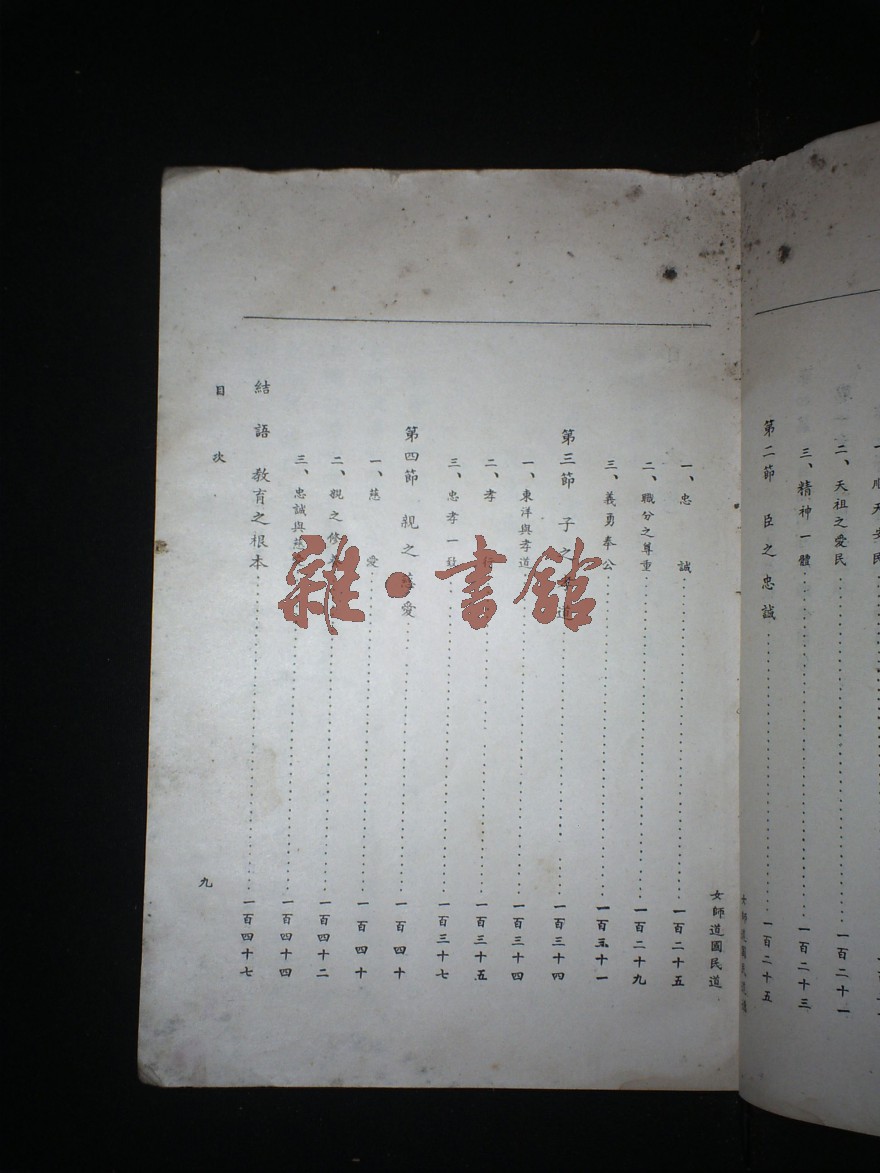 二、天祖之愛民……一百二十一
三、精神一體……一百二十三
第二節 臣之忠誠……一百二十五
女師道國民道
一、忠誠……一百二十五
二、職分之尊重……一百二十九
三、義勇奉公……一百三十一
第三節 子之道……一百三十四
一、東洋與孝道……一百三十四
二、孝……一百三十五
三、忠孝一致……一百三十七
第四節 親之慈愛……一百四十
一、慈愛……一百四十
二、親之修……一百四十二
三、忠誠與慈……一百四十四
結語 教育之根本……一百四十七
目次
九
雜·書館